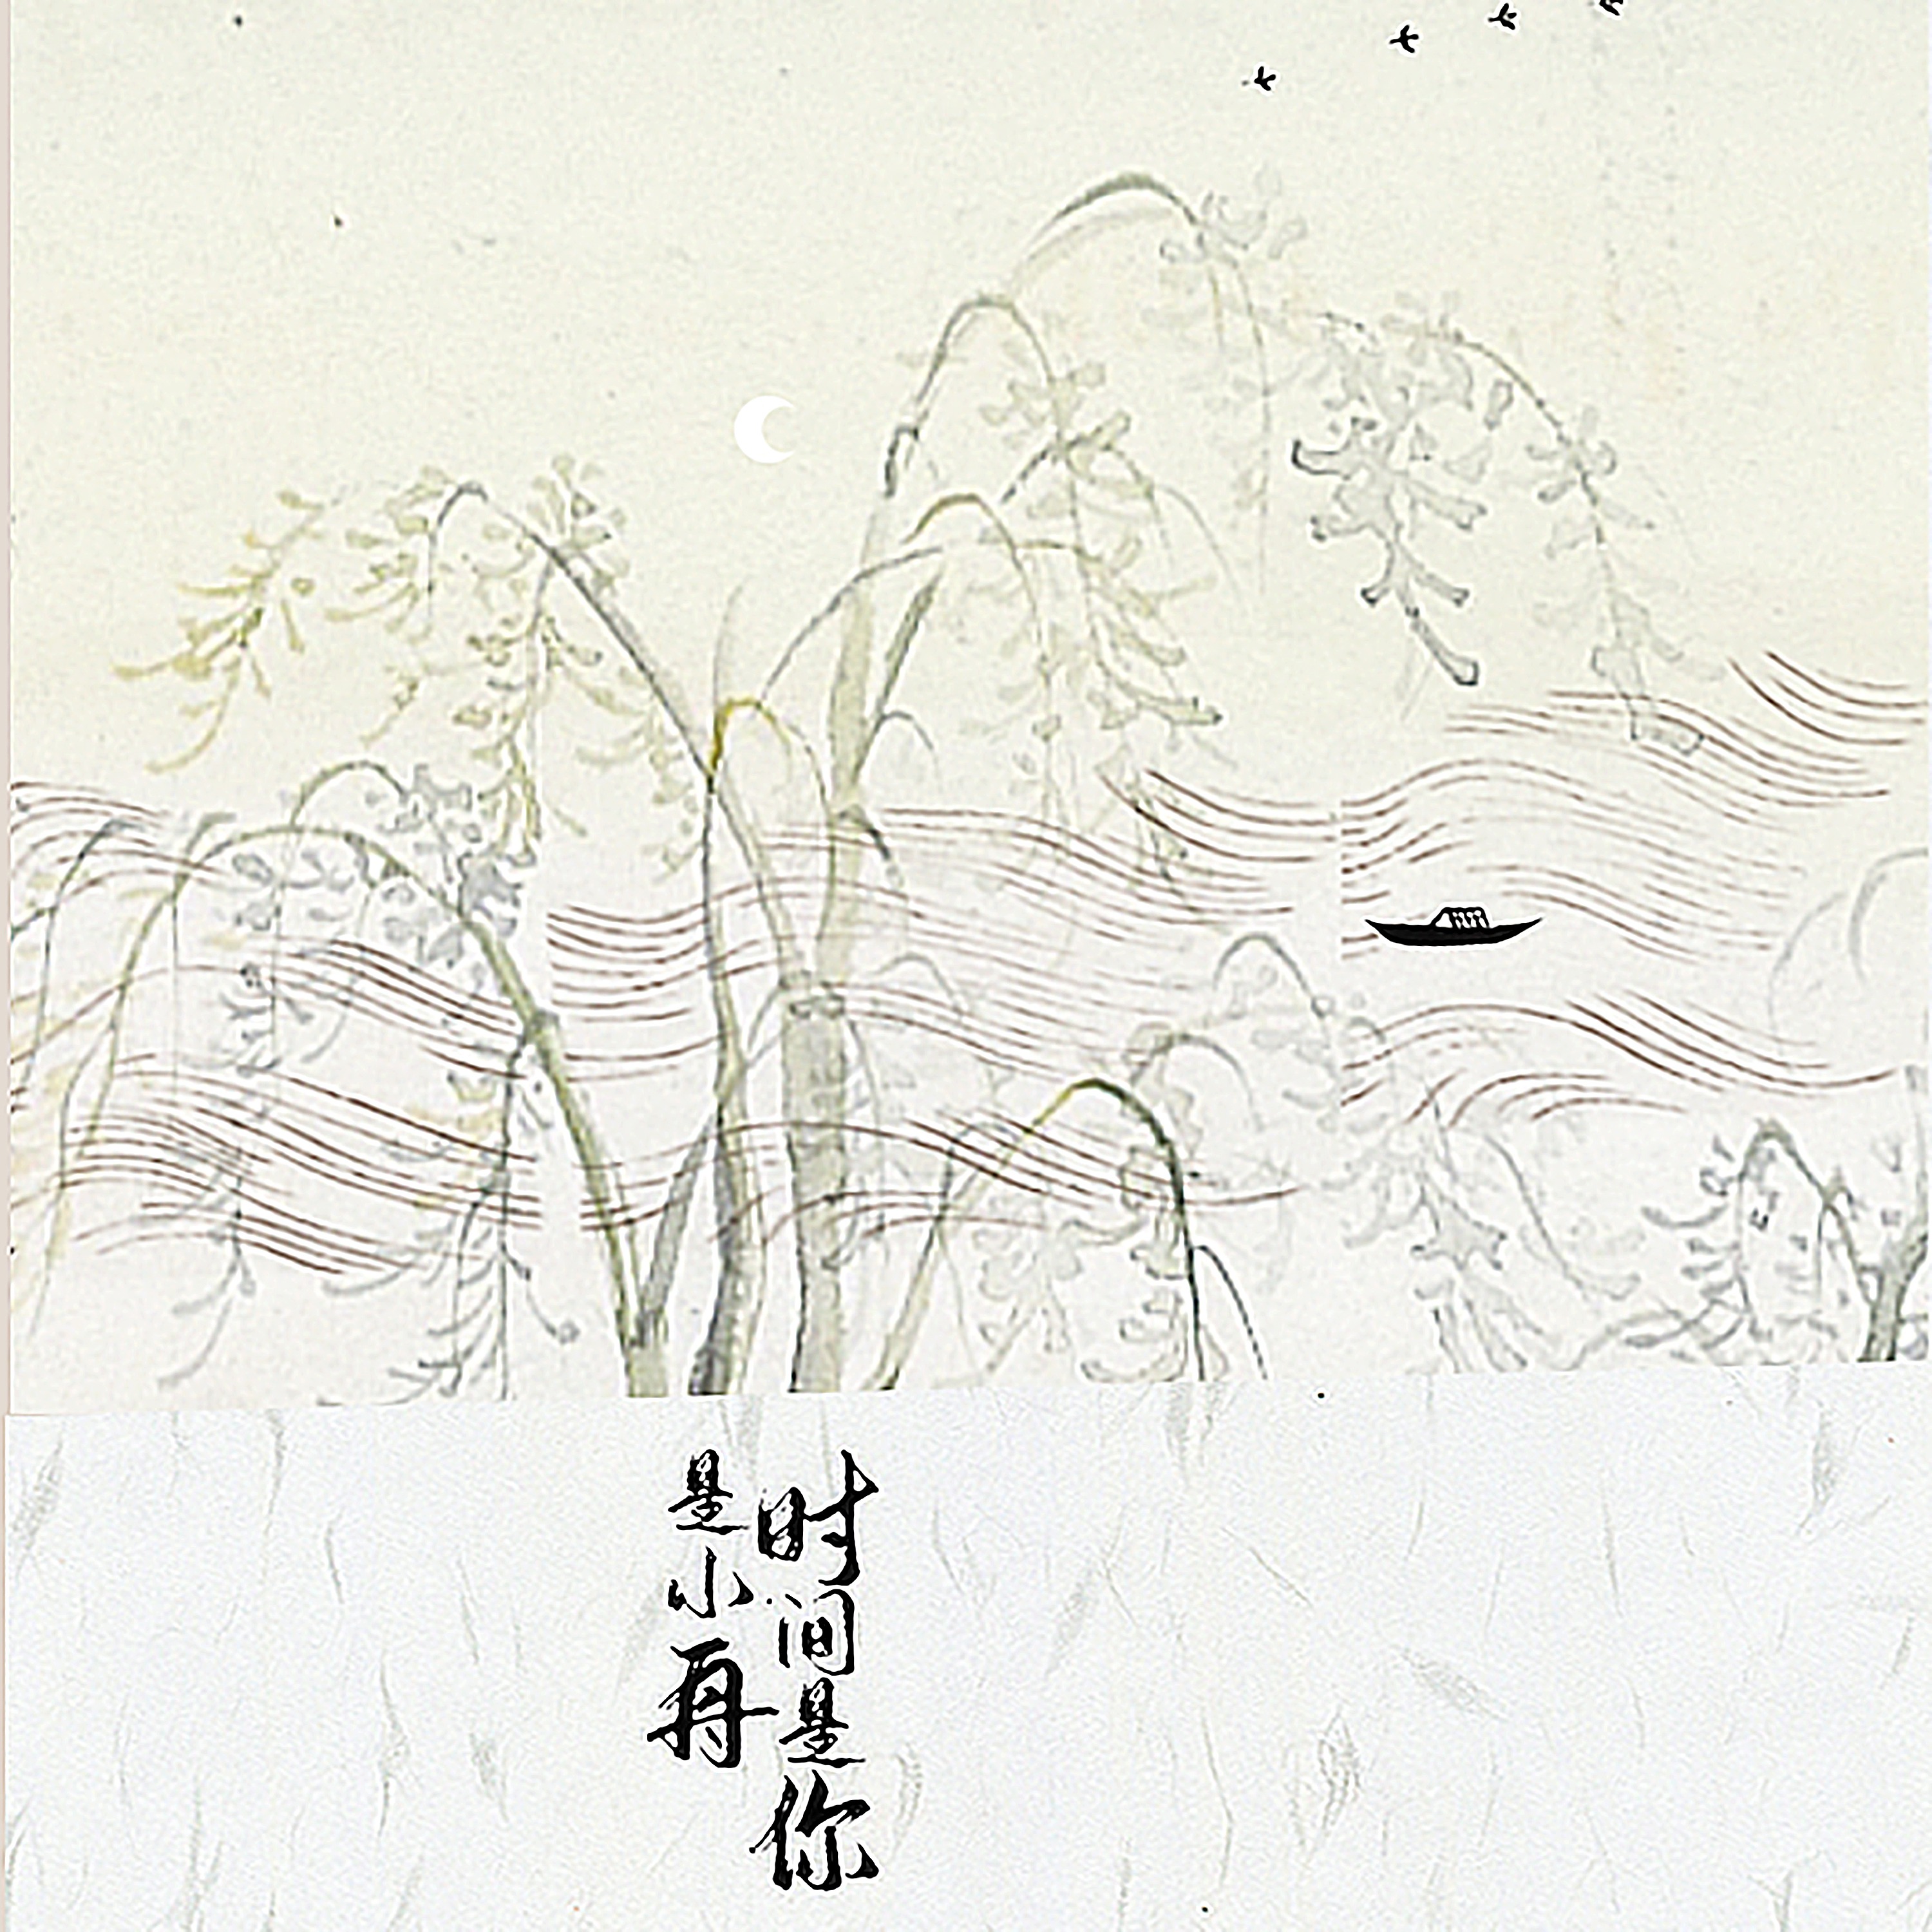 时间是你
是小再